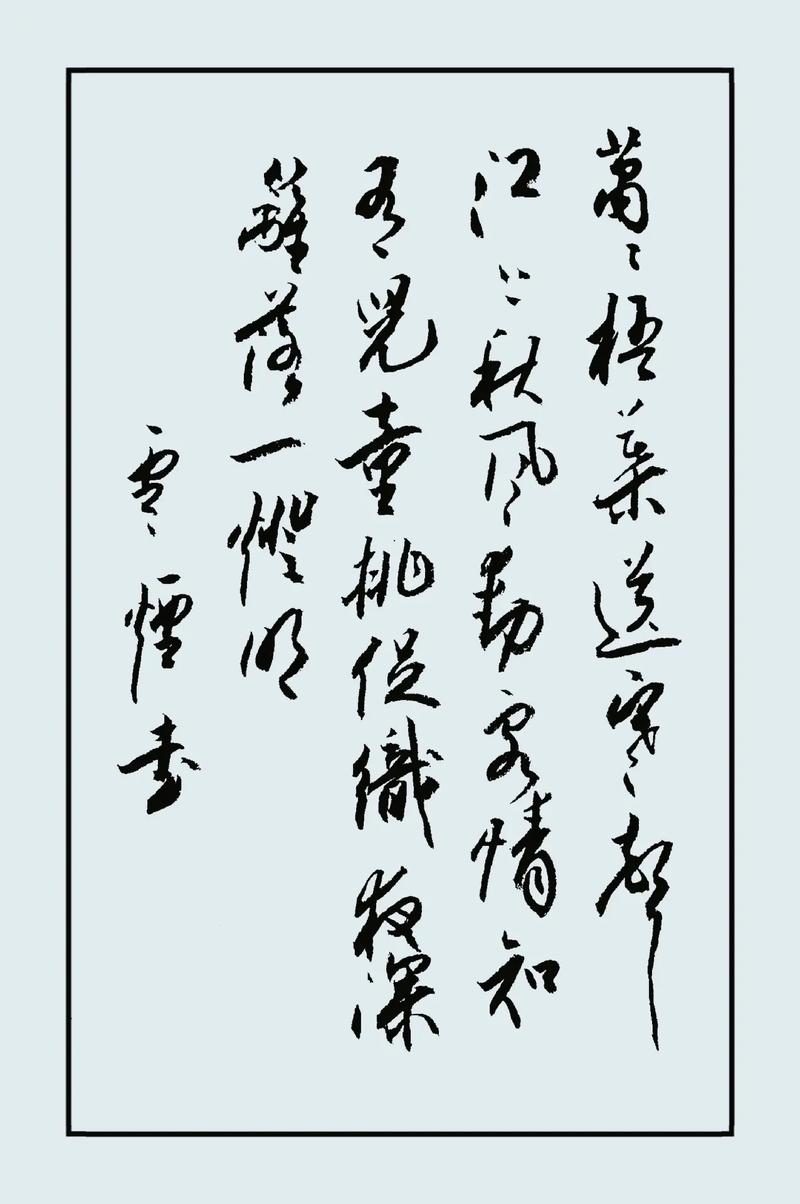 蕭〻梧葉送寒聲
江上秋風動客情知
有兒童挑促織夜深
籬落一燈明
雲煙書